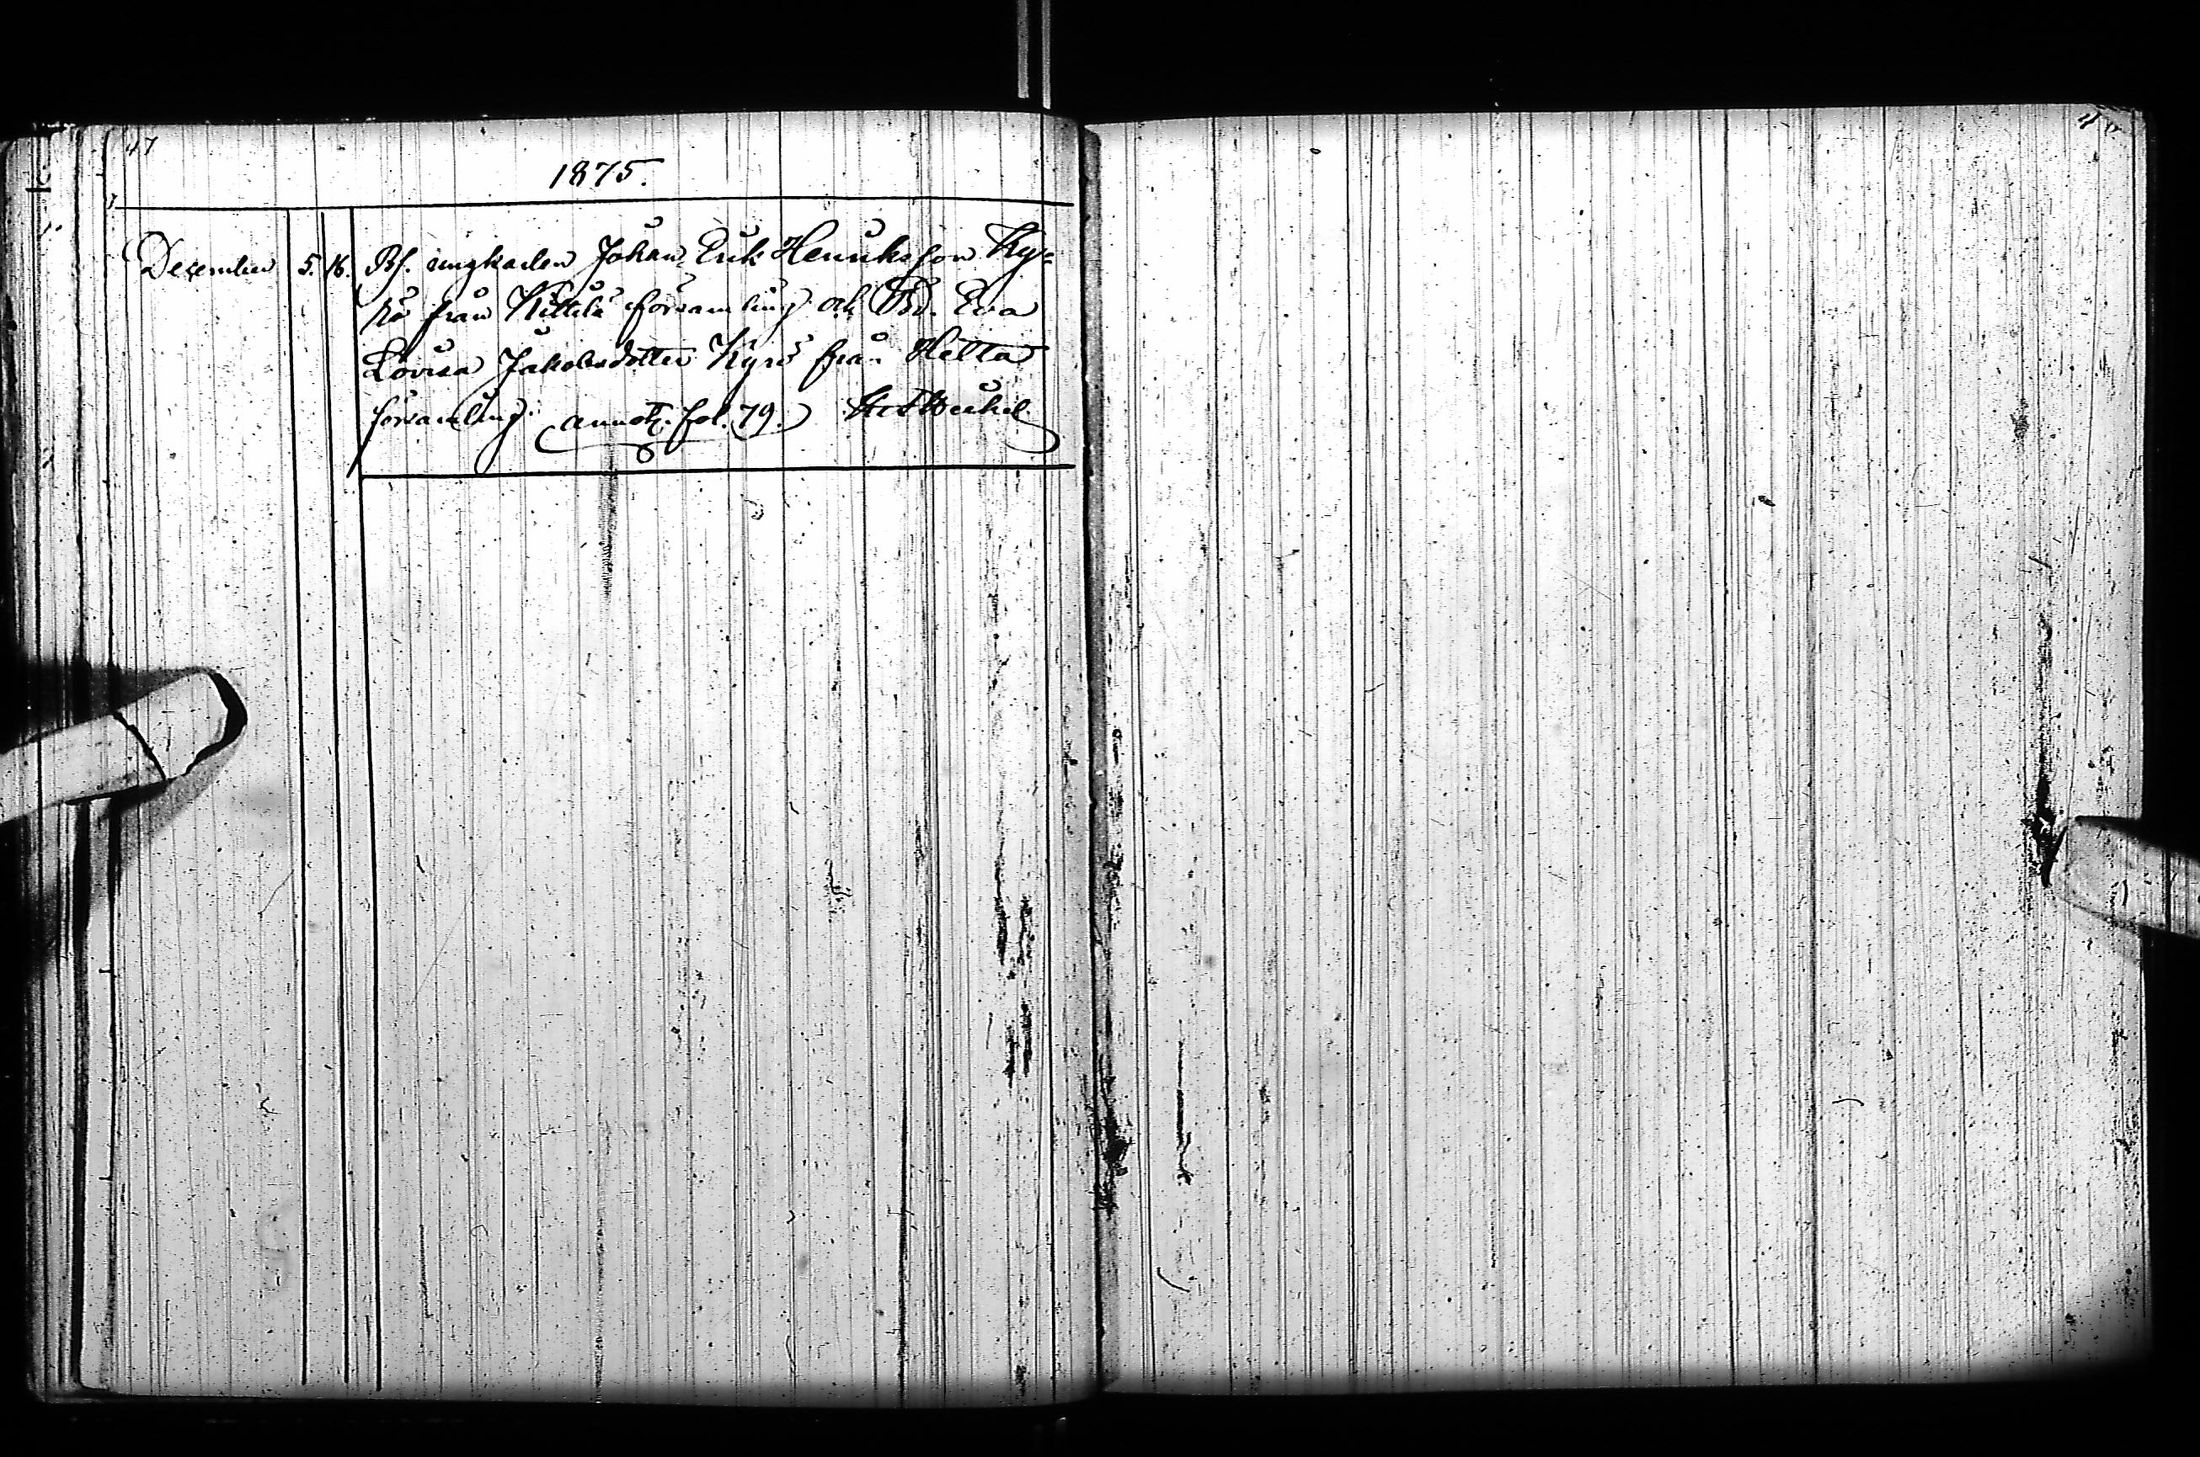 47
1875.
December 5. 16. Bs. ungkarlen Johan Erik Henriksson Ky-
rö från Kittilä församling och Bd. Eva
Lovisa Jakobsdotter Kyrö från Hetta
församling. annot. fol. 79.